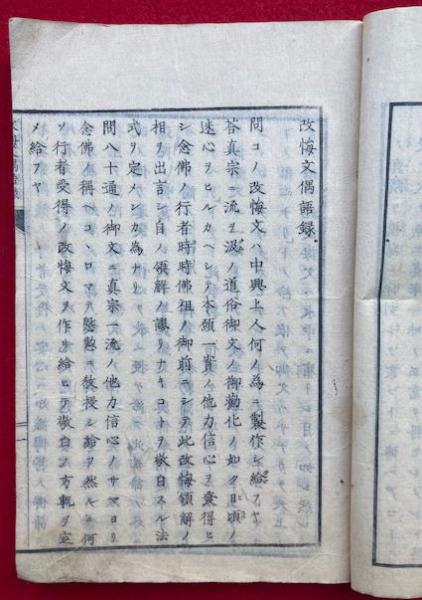 改悔文偶語録
問コノ改悔文ハ中興上人何ノ為ニ製作シ給フヤ
荅真宗ニ流ヲ汲ノ道俗御文ノ御勸化ノ如ク日頃ノ
迷心ヲヒルカヘシテ本願一實ノ他力信心ヲ獲得セ
シ念佛ノ行者時時佛祖ノ御前ニシテ此改悔領解ノ
相ヲ出言シ自ノ領解ノ謬リナキコトヲ敬白スル法
式ヲ定メンカ為ナリ
問八十通ノ御文ニ真宗一流ノ他力信心ノサマヨリ
念佛ノ稱ヘコヽロマテ慇懃ニ教授シ給ヲ然ルニ何
ソ行者受得ノ改悔文ヲ作リ給ヒテ敬白ノ方軌ヲ定
メ給フヤ